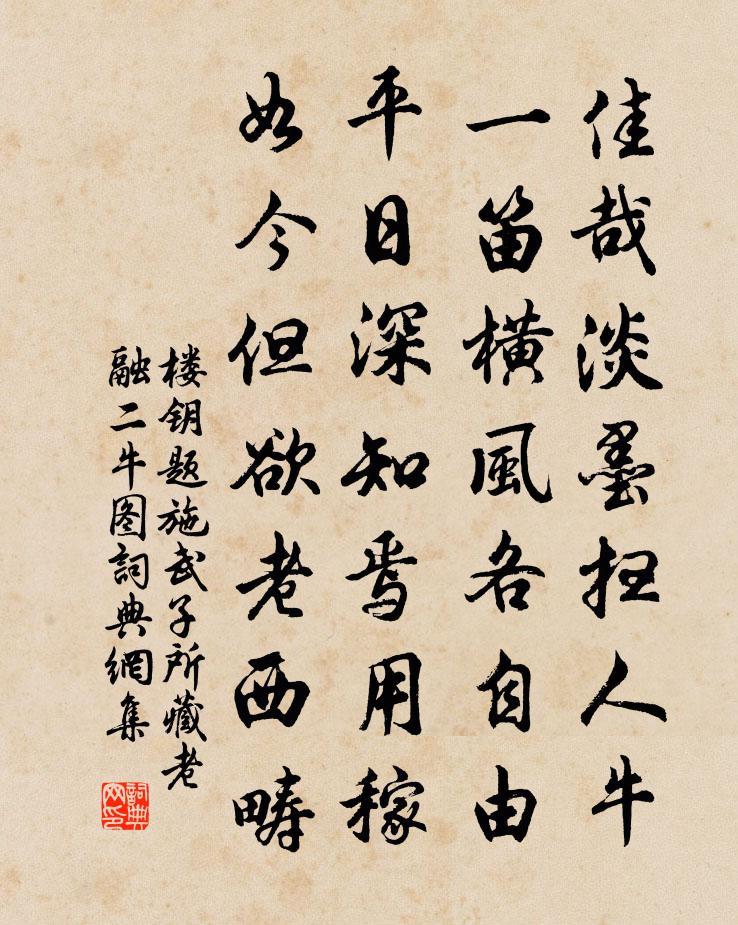 佳哉淡墨扫人牛
一笛横風各自由
平日深知焉用稼
如今但欲老西畴
楼钥题施武子所藏老
融二牛图詞典網集
詞典网印